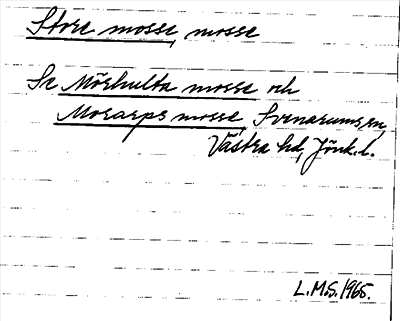 Store mosse, mosse
Se Mörhulta mosse och
Mosarps mosse, Svenarums sn,
Västra hd, Jönk. l.
L.M.S. 1965.